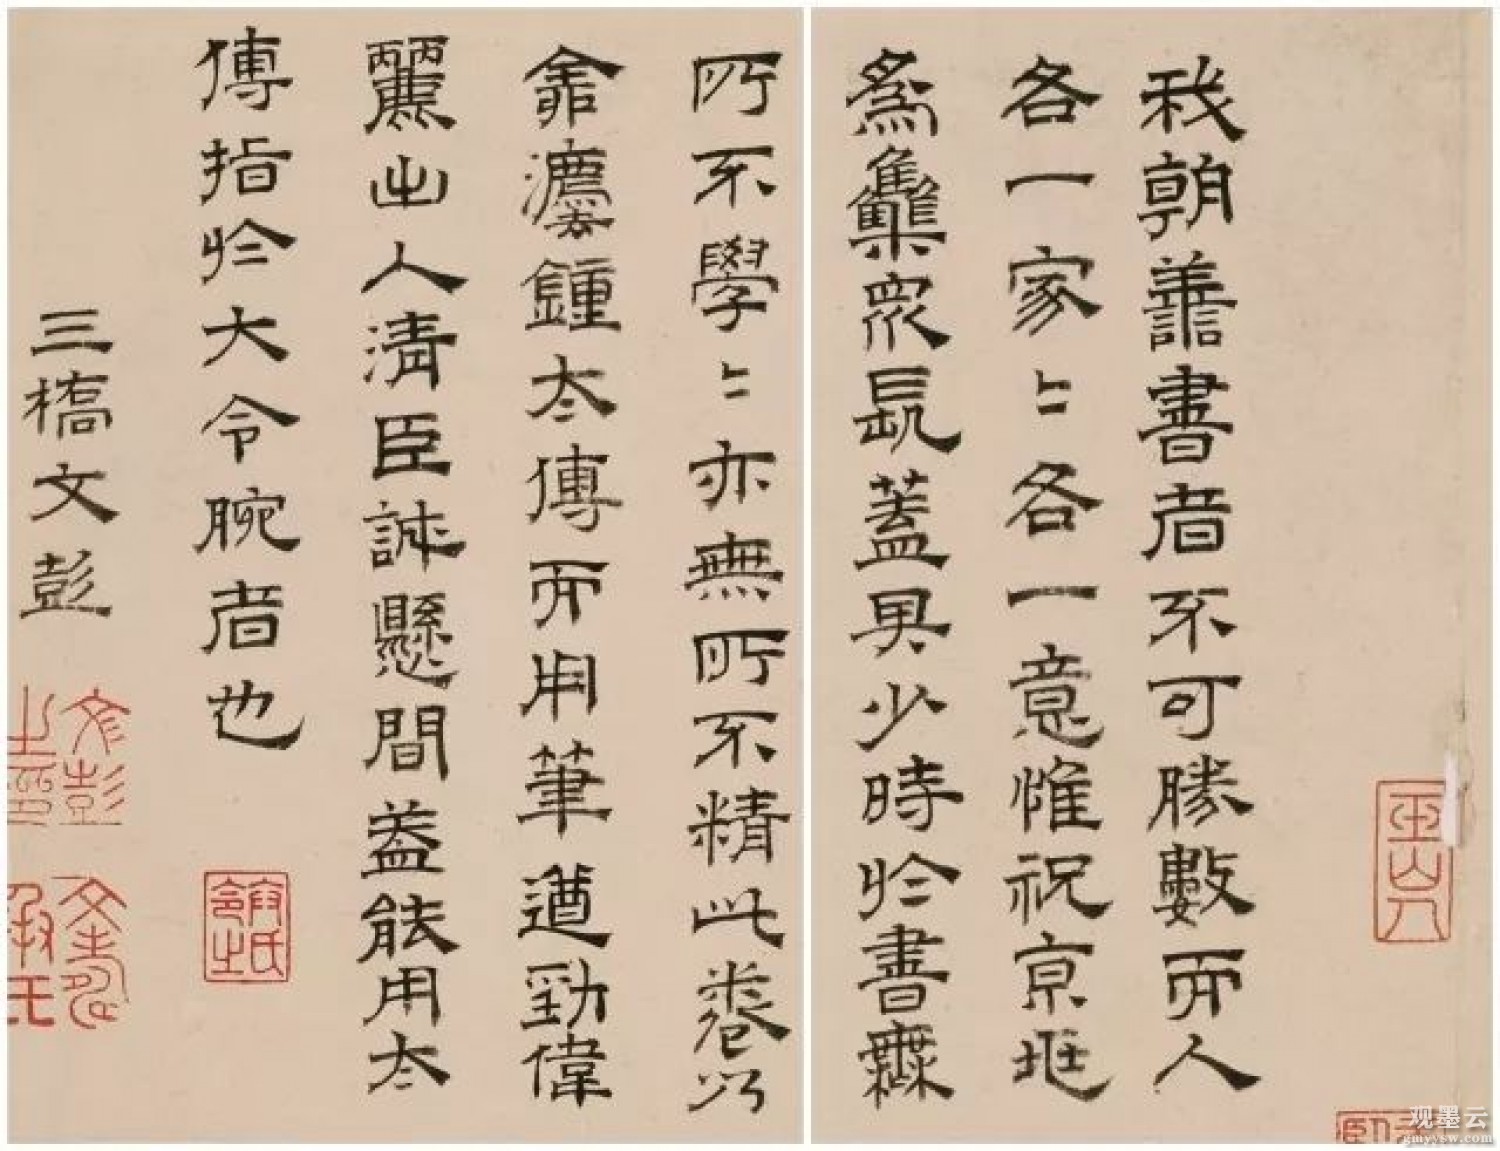 我朝善書者不可勝數而人
各一家〻各一意惟祝京兆
為集眾長蓋其少時於書無
所不學〻亦無所不精此卷以
俞紫鍾太傅而用筆遒勁偉
麗出人清臣誠懸間蓋能用太
傅指於大令腕者也
三橋文彭
文彭之印
文壽承氏
观墨云
gmyysw.com